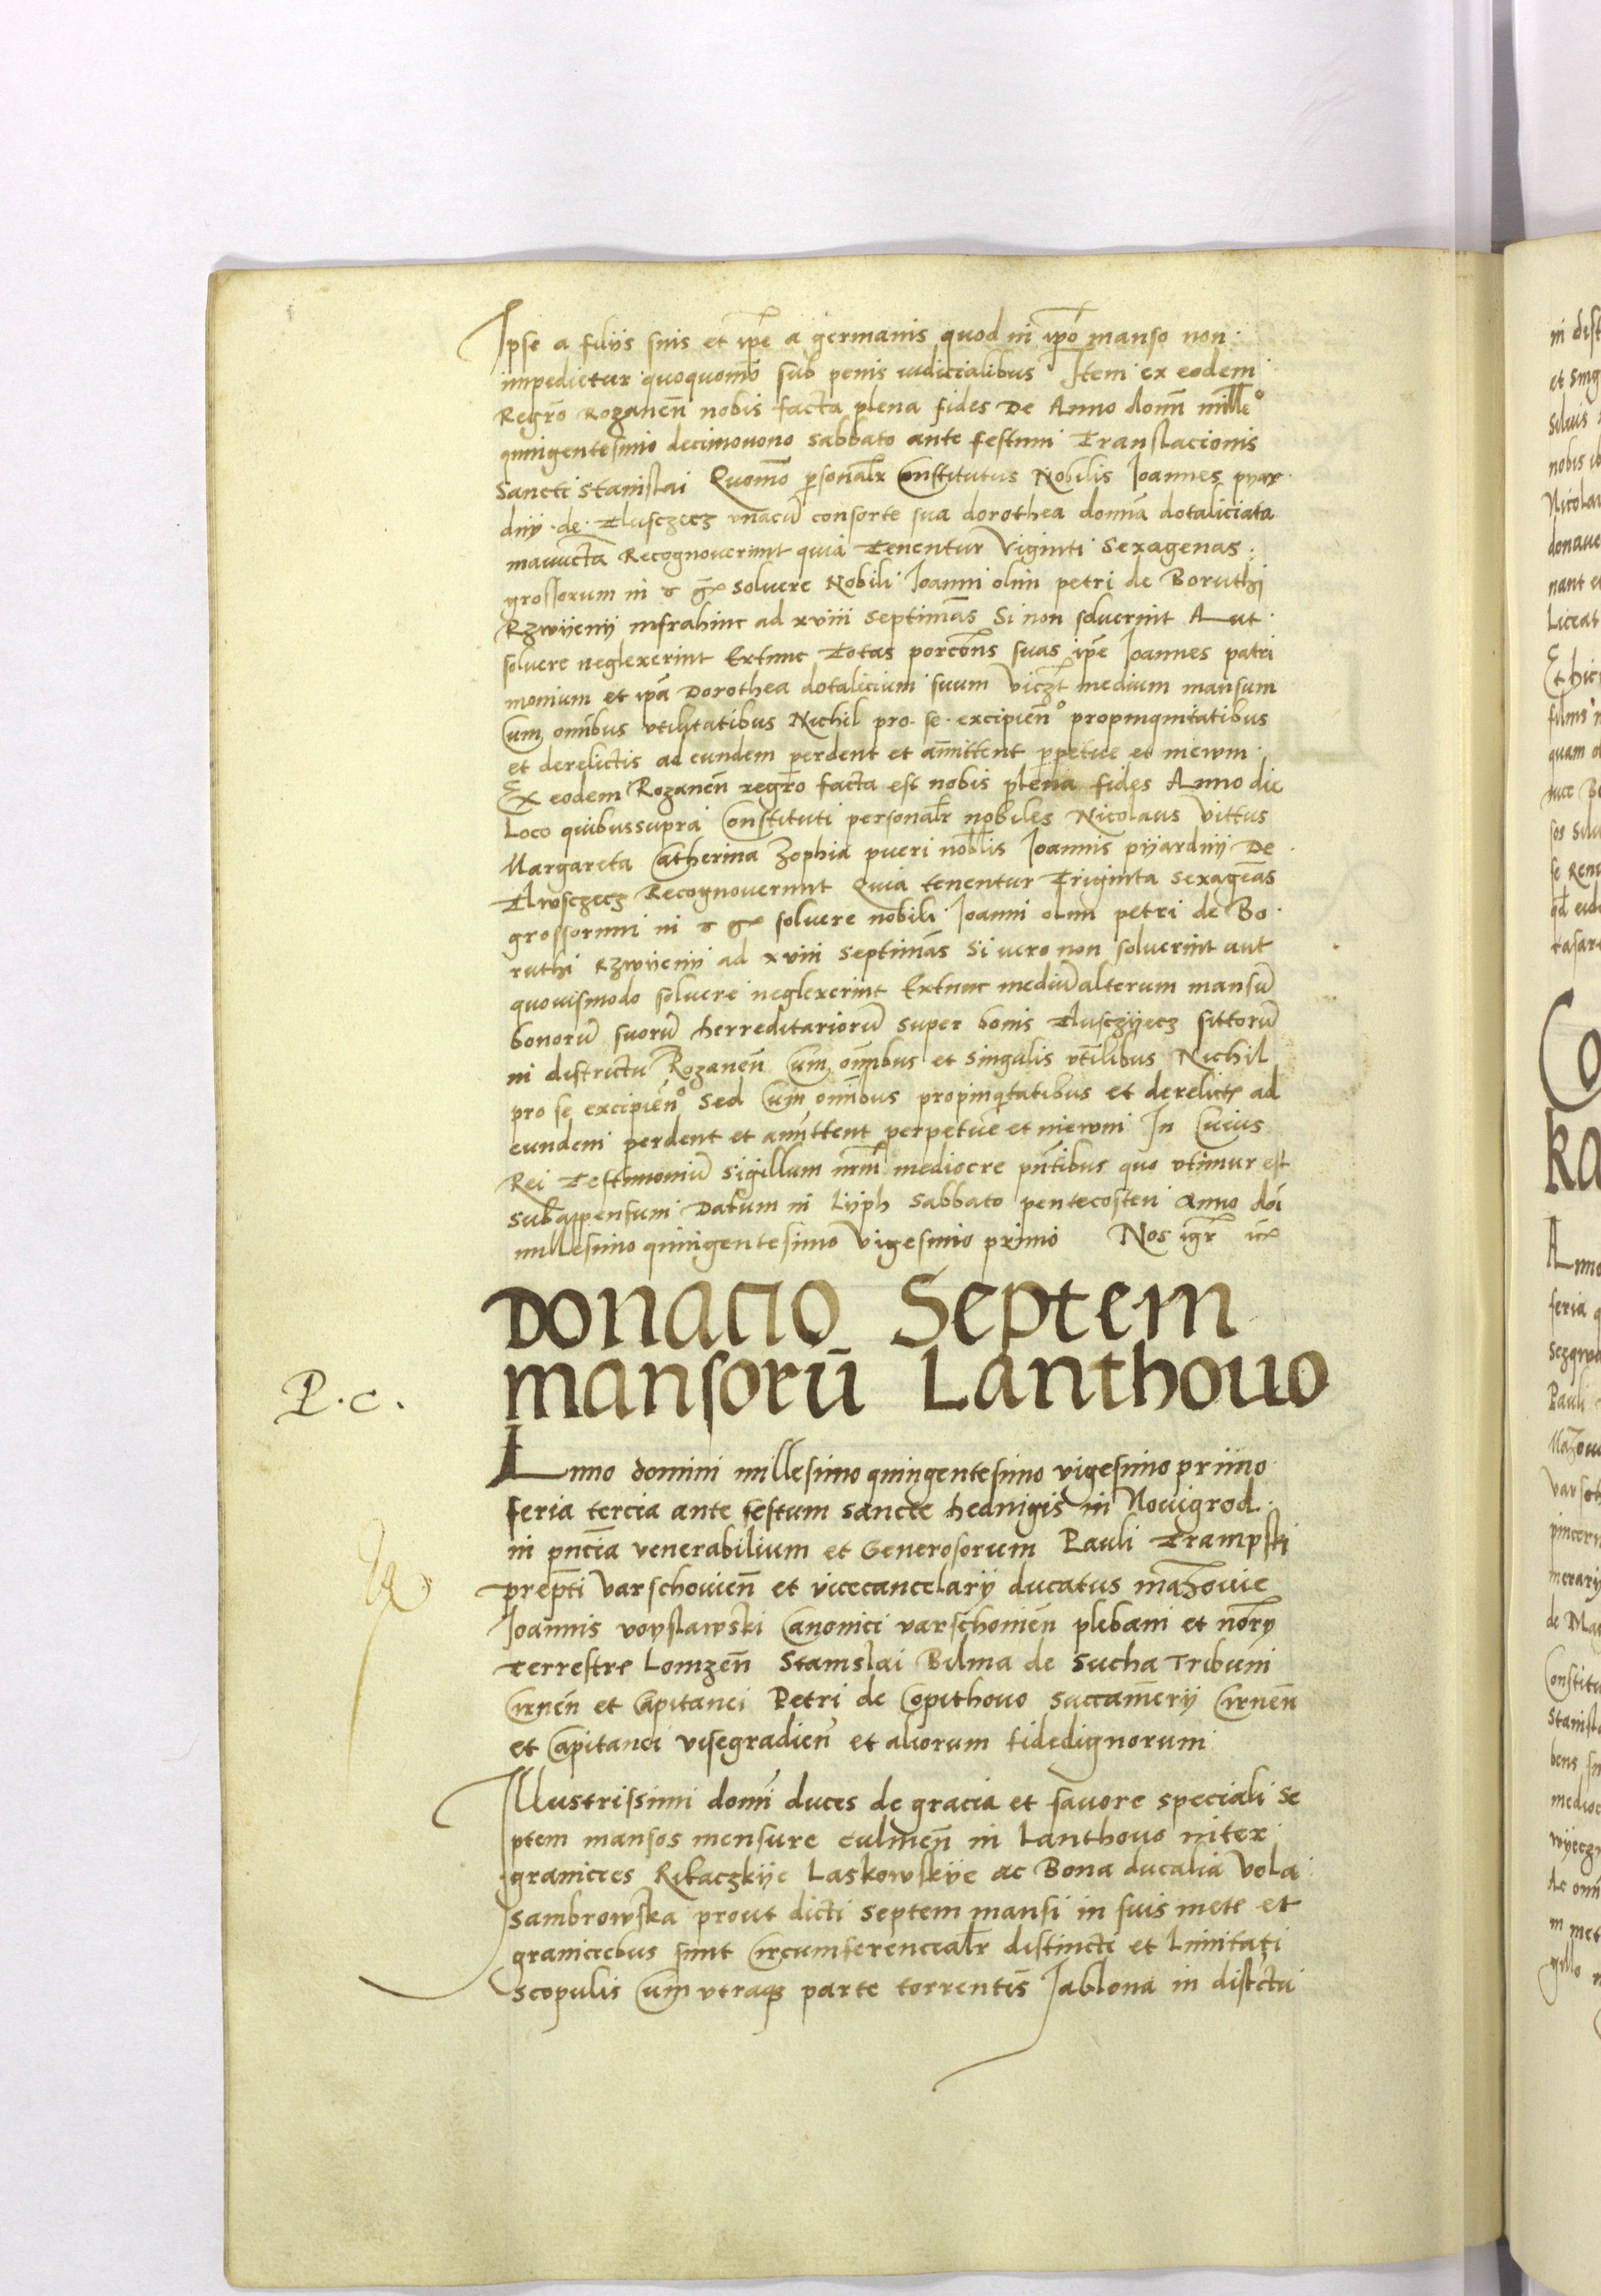 Ipse a filiis suis et ip̄e a germanis quod in ip̄o manso non
impedietur quoquom̄o sub penis iudicialibus Item ex eodem
Regr̄o Rozanen̄ nobis facta plena fides De Anno domi̅ mill̄o
quingentesimo decimonono sabbato ante festum Translacionis
Sancti Stanislai Quom̄o p̱sonalr̄ Constitutus Nobilis Ioannes pyar
dny de Tlusczecz vnacū consorte sua dorothea domīa dotaliciata
Recognouerunt quia Tenentur Viginti Sexagenas
grossorum in soluere Nobili Ioanni olim petri de Boruthi
Rzwijenij infrahinc ad xviii septimās Si non soluerint Aut
soluere neglexerint Extunc Totas porcōns suas ip̄e Ioannes patri
monium et ip̄a Dorothea dotalicium suum viczt̄ medium mansum
Cum omībus vtilitatibus Nichil pro se excipien̄o propinquitatibus
et derelictis ad eundem perdent et am̄ittent p̱petue et in ewm
Ex eodem Rozanen̄ regr̄o facta est nobis plena fides Anno die
Loco quibussupra Constituti personalr̄ nobiles Nicolaus Vittus
Margareta Catherina Zophia pueri nobl̄is Ioannis pijardnij De
Tlwsczecz Recognouerunt Quia tenentur Triginta sexagēas
grossorum in soluere nobili Ioanni olim petri de Bo
ruthi Rzwijenij ad xviii septimās Si vero non soluerint aut
quouismodo soluere neglexerint Extunc mediū alterum mansū
bonorū suorū herreditariorū super bonis Tlusczijecz sittorū
in districtu Rozanen̄ Cum om̄ibus et singulis vtīlibus Nichil
pro se excipien̄o Sed Cum om̄ibus propinqtatibus et derelict ad
eundem perdent et amittent perpetue et in ewm In Cuius
Rei Testimoniū sigillum nr̄m mediocre pn̄tibus quo vtimur est
subappensum Datum in Lijph Sabbato pentecosten Anno doi̅
millesimo quingentesimo vigesimo primo Nos igr̄
Donacio Septem
mansorū Lanthouo
P. c.
Anno domini millesimo quingentesimo vigesimo primo
feria tercia ante festum sancte hedwigis in Nouigrod
in pn̄cia venerabilium et Generosorum Pauli Trampski
prep̄ti varschouien̄ et vicecancelarij ducatus mazouie
Ioannis voyslawski Canonici varschouien̄ plebani et nōry
terrestre Lomzen̄ Stanislai Bilma de Sucha Tribuni
Cirnen̄ et Capitanei Petri de Copithouo succam̄erij Cirnen̄
et Capitanei visegradien̄ et aliorum fidedignorum
Illustrissimi domi̅ duces de gracia et fauore speciali Se
ptem mansos mensure culmen̄ in Lanthouo inter
granicies Ribaczkije Laskowskije ac Bona ducalia Vola
sambrowska prout dicti septem mansi in suis mete et
graniciebus sunt Circumferencealr̄ distincti et Limitati
scopulis Cum vtraq parte torrentis Jablona in distctu